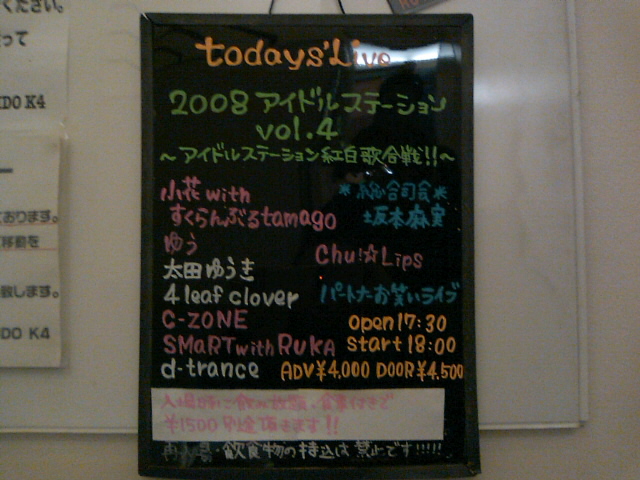 ください。
って
DO K4
ております。
移動を
致します。
DO K4
todays' Live
2008 アイドルステーション
vol.4
～アイドルステーション紅白歌合戦!!～
小花 with
すくらんぶるtamago
ゆう
太田ゆうき
4 leaf clover
C-ZONE
SMaRT with RUKA
d-trance
＊総合司会＊
坂本麻実
Chu!☆Lips
パートナーお笑いライブ
open 17:30
start 18:00
ADV ¥4,000 DOOR ¥4,500
入場時に飲み放題、食事付きで
¥1500 別途頂きます!!
再入場・飲食物の持込は禁止です!!!!!